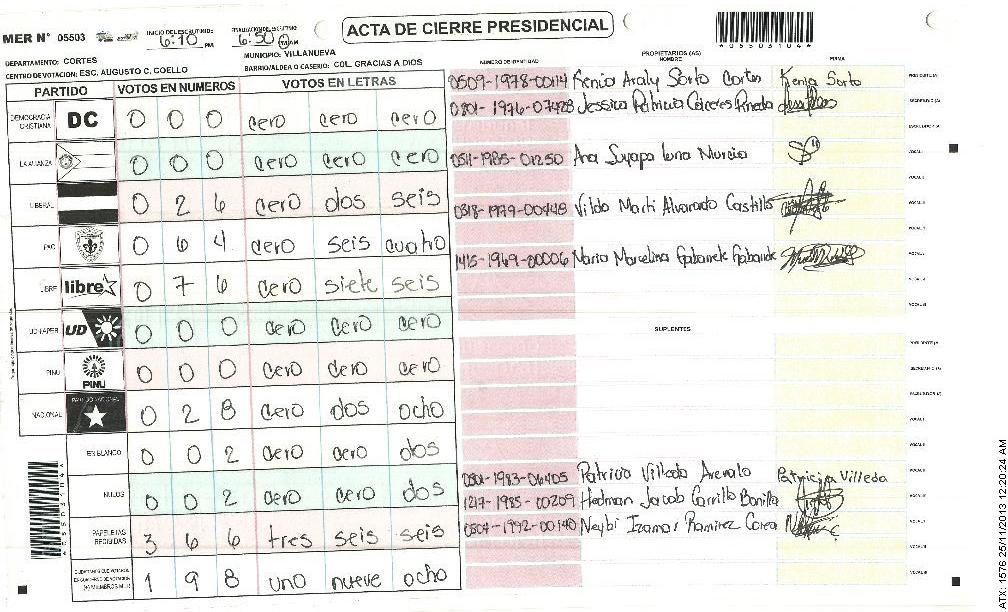 ACTA DE CIERRE PRESIDENCIAL
MER N° 05503
INICIO DEL ESCRUTINIO 6:10 PM
FINALIZACION DEL ESCRUTINIO 6:50
*0550310 4*
DEPARTAMENTO: CORTES
MUNICIPIO: VILLANUEVA
CENTRO DE VOTACION: ESC. AUGUSTO C. COELLO
BARRIO/ALDEA O CASERIO: COL. GRACIAS A DIOS
PARTIDO VOTOS EN NUMEROS VOTOS EN LETRAS
DEMOCRACIA CRISTIANA DC 0 0 0 cero cero cero
LA ALIANZA 0 0 0 cero cero cero
LIBERAL 0 2 6 cero dos seis
PAC 0 6 4 cero seis cuatro
LIBRE libre 0 7 6 cero siete seis
UD-FAPER UD 0 0 0 cero cero cero
PINU PINU 0 0 0 cero cero cero
NACIONAL PARTIDO NACIONAL 0 2 8 cero dos ocho
EN BLANCO 0 0 2 cero cero dos
NULOS 0 0 2 cero cero dos
PAPELETAS RECIBIDAS 3 6 6 tres seis seis
CIUDADANOS QUE VOTARON EN CUADERNO DE VOTACION (+) MIEMBROS MER 1 9 8 uno nueve ocho
NUMERO DE IDENTIDAD PROPIETARIOS (AS) NOMBRE FIRMA
0509-1978-00114 Kenia Araly Sorto Cortes Kenia Sorto PRESIDENTE (A)
0801-1976-07428 Jessica Patricia Caceres Pineda SECRETARIO (A)
ESCRUTADOR (A)
0511-1985-01250 Ana Suyapa Luna Murcia VOCAL I
VOCAL II
0318-1979-00448 Vilda Marti Alvarado Castillo VOCAL III
1415-1969-00006 Maria Marcelina
SUPLENTES
PRESIDENTE (A)
SECRETARIO (A)
ESCRUTADOR (A)
0501-1983-06405 Patricia Villeda Arevalo Patricia Villeda
1217-1985-00209 Hedman Jacob Carrillo Bonilla
0504-1992-00140 Neybi Izamar Ramirez Correa
ATX: 1576 25/11/2013 12:20:24 AM